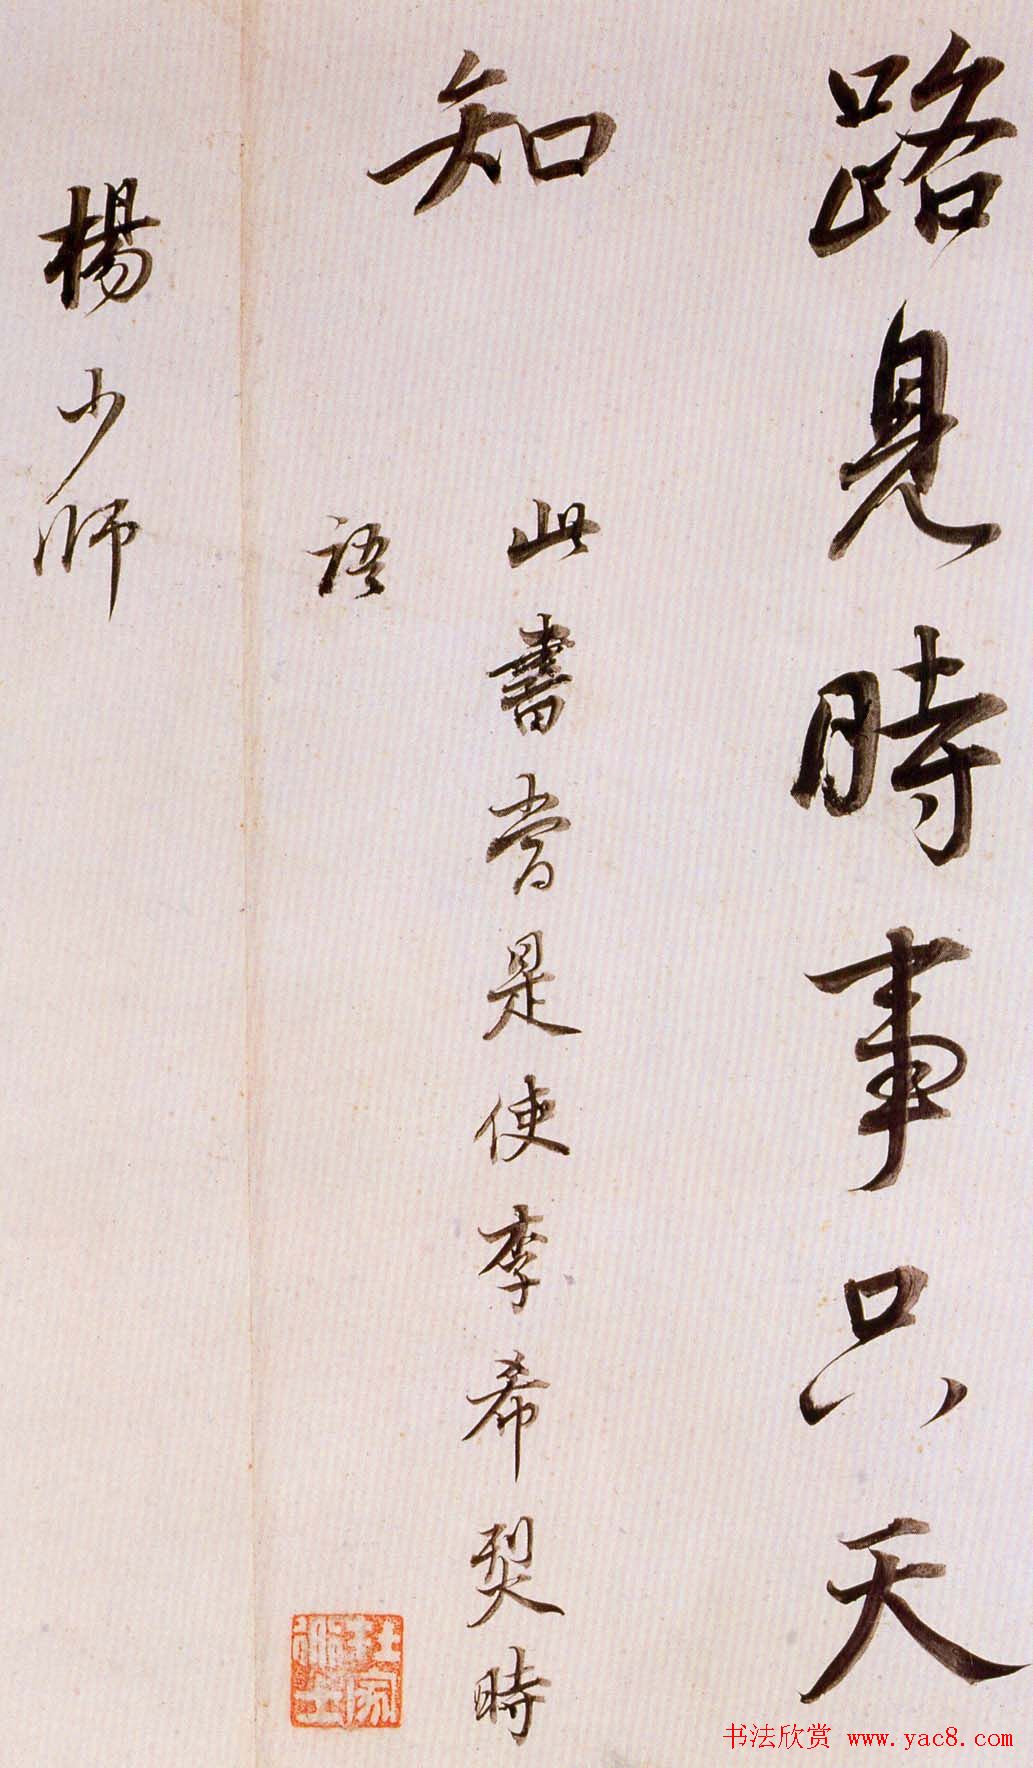 路見時事只天
知
此書當是使李希烈時
語
楊少師
书法欣赏 www.yac8.com